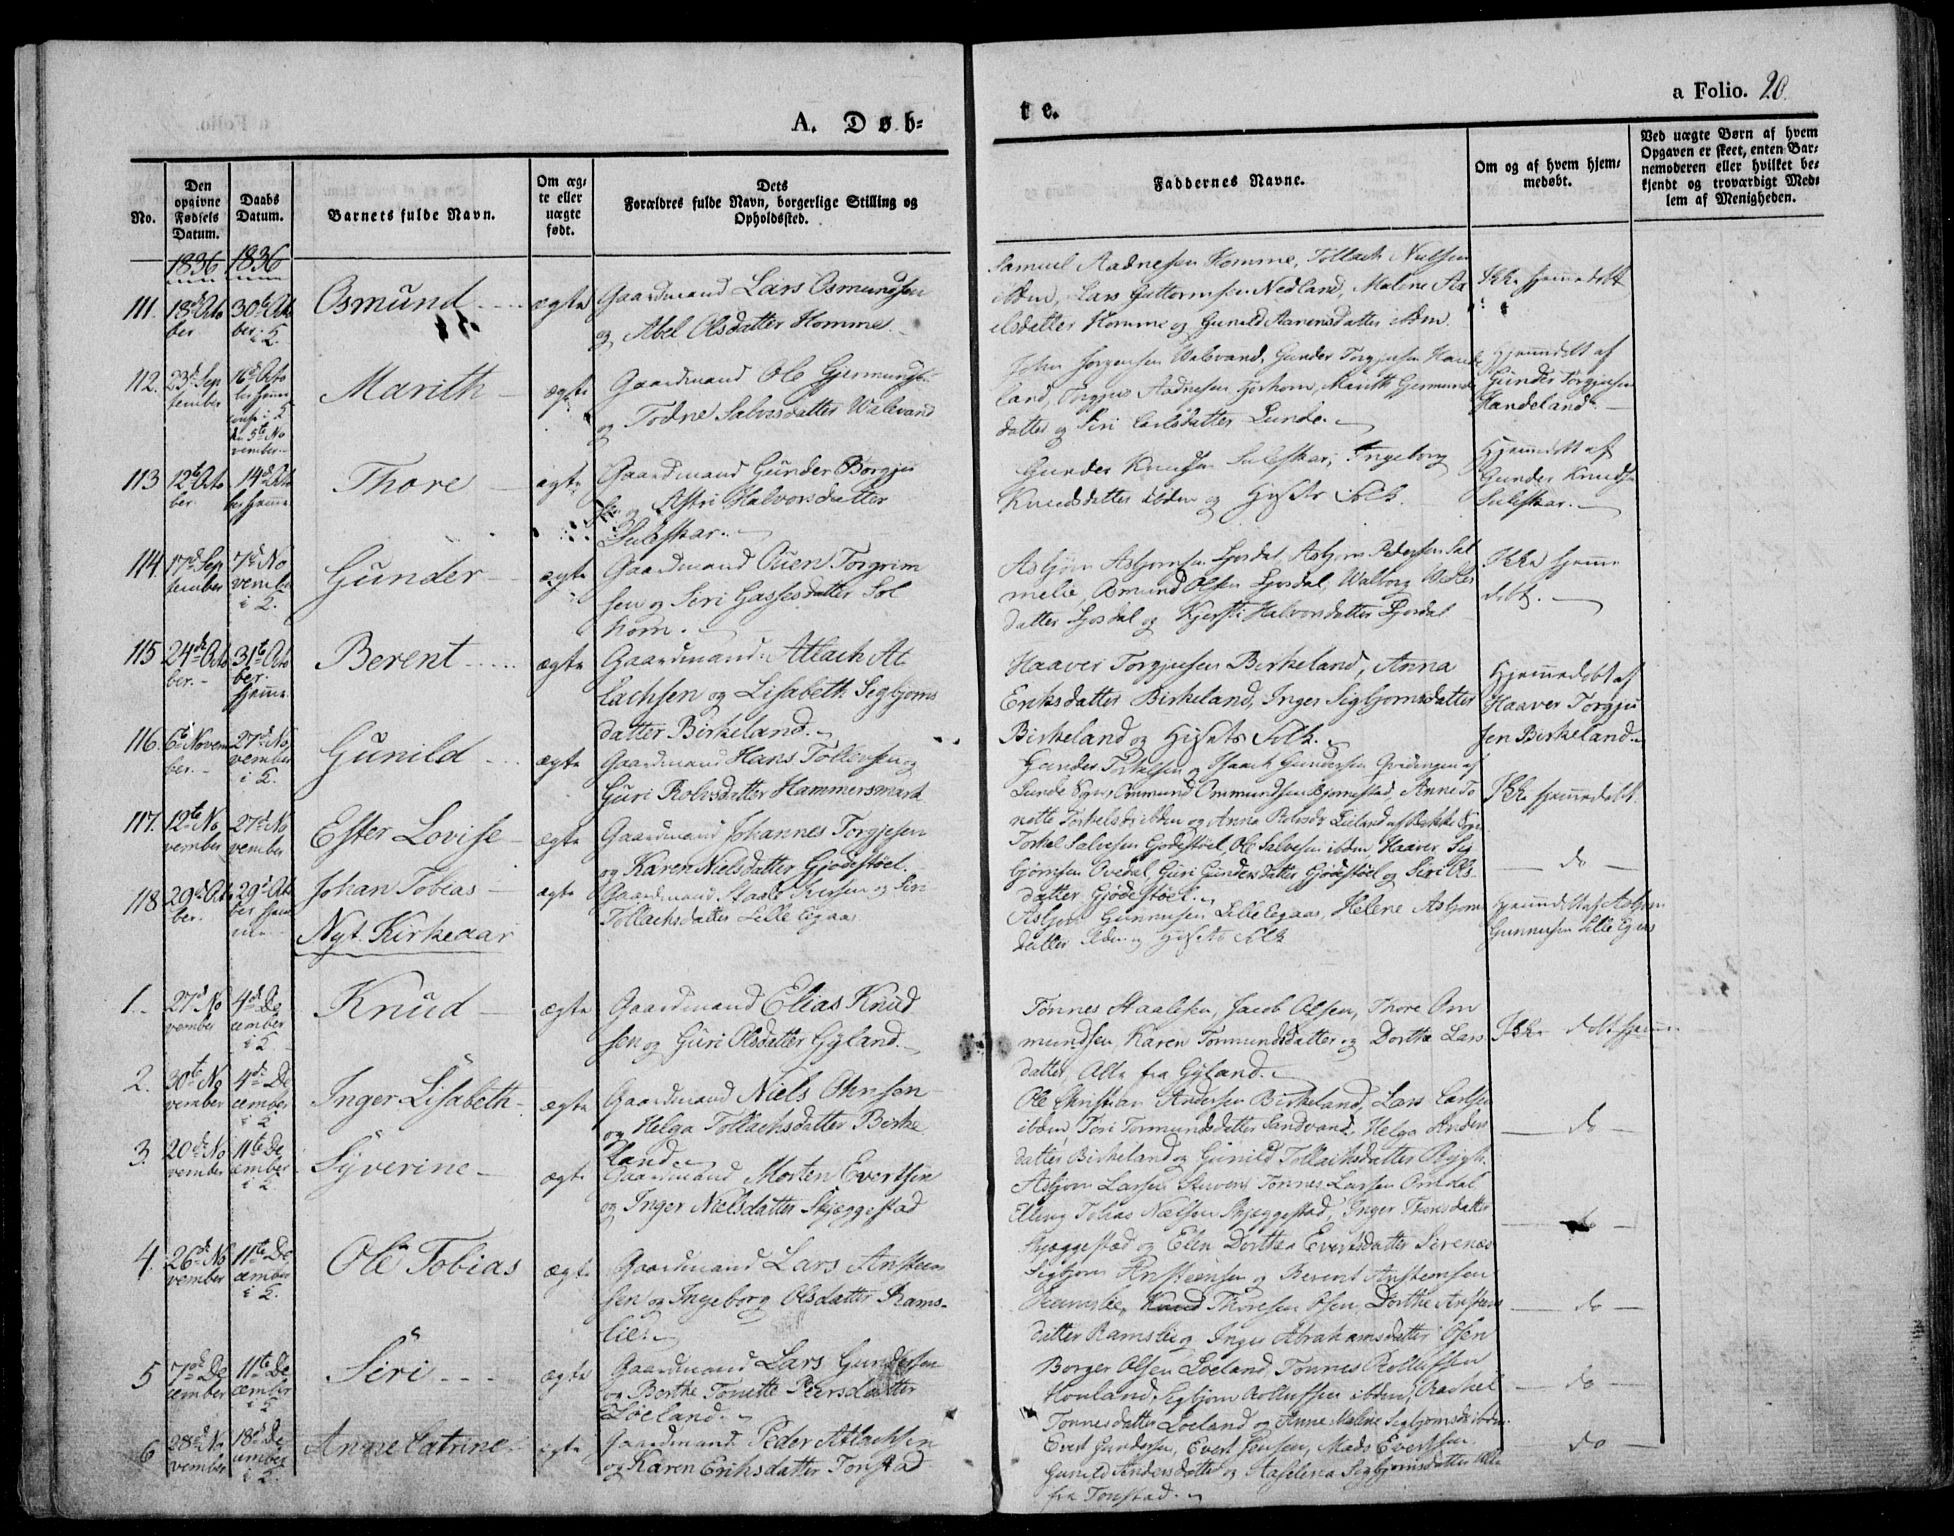 a Folio. 20.
A. Døb=
te.
No.
Den opgivne Fødsels Datum.
Daabs Datum.
Barnets fulde Navn.
Om æg=
te eller
uægte
født.
Dets
Forældres fulde Navn, borgerlige Stilling og
Opholdssted.
Faddernes Navne.
Om og af hvem hjem=
medøbt.
Ved uægte Børn af hvem
Opgaven er skeet, enten Bar=
nemoderen eller hvilket be=
kjendt og troværdigt Med=
lem af Menigheden.
1836 1836
111. 18de Octo
ber
30te Octo
ber i K.
Osmund
ægte
Gaardmand Lars Osmundsen
og Abel Olsdatter Homme
Samuel Aadnesen Homme, Tollach
ibdm, Lars Guttormsen Nedland, Malene
elsdatter Homme og Gunild Aanensdatter ibdm.
Ikke hjemmedøbt
112. 23d Sep
tember
16d Octo
ber hjemme
i K
den 5te No
vember
Marith
ægte
Gaardmand Ole Gjermundsen
og Todne Salvesdatter Walevand
John Jørgensen Walevand, Gunder Torgjusen Hande
land, Torgjus Aadnesen, Marith Gjermunds
datter og Siri Carlsdatter Lunde.
Hjemmedøbt af
Gunder Torgjusen
Handeland.
113 12te Octo
ber
14d Octo
ber hjemme
Thore
ægte
Gaardmand Gunder Borgju
sen og Astri Halvorsdatter
Suleskar.
Gunder Knudsen Suleskar, Ingeborg
Knudsdatter ibdm og Husets Folk.
Hjemmedøbt af
Gunder Knudsen
Suleskar.
114. 17d Sep
tember
7d No
vember
i K.
Gunder
ægte
Gaardmand Ouen Torgrim
sen og Siri Gassesdatter Sol
horn.
Asbjørn Asbjørnsen Ljosdal, Asbjørn Pedersen Sal
melie, Osmund Olsen Ljosdal, Walborg
datter Ljosdal og Kjersti Halvorsdatter Ljosdal
Ikke hjemme
døbt.
115 24de Octo
ber.
31te Octo
ber.
hjemme
Berent
ægte
Gaardmand Atlach At
lachsen og Lisabeth Segbjørns
datter Birkeland.
Haaver Torgjusen Birkeland, Anna
Eriksdatter Birkeland, Inger Sigbjørnsdatter
Birkeland og Husets Folk.
Hjemmedøbt af
Haaver Torgju
sen Birkeland.
116. 6te Novem
ber.
27d No
vember
i K.
Gunild
ægte
Gaardmand Hans Tollevsen og
Guri Rolvsdatter Hammersmark
Gunder Torkelsen og Isaach Gundersen af
Lunde Sogn, Ommund Ommundsen Bjørnestad, Anne To
nette Torkelsd ibdm og Anna Rolvsdr Eieland af Bakke Sogn
Ikke hjemmedøbt
117. 12te No
vember
27d No
vember
Ester Lovise
ægte
Gaardmand Johannes Torgjesen
og Karen Nielsdatter Gjødestøel.
Torkel Salvesen Gjødestøel, Ole Salvesen ibdm, Haaver Sig
bjørnsen Ovedal, Guri Gundersdatter Gjødestøel og Siri Ols
datter Gjødestøel.
do
118 29de Octo
ber.
29d Octo
ber hjem
me
Johan Tobias
ægte
Gaardmand Staale Iversen og Siri
Tollachsdatter Lille Eegaas
Asbjørn Gunnufsen Lille Eegaas, Helene Asbjørns
datter ibdm og Husets Folk
Hjemmedøbt af Asbjørn
Gunnufsen Lille Egaas
Nyt Kirkeaar
1. 27d No
vember
4de De
cember
i K
Knud
ægte
Gaardmand Elias Knud
sen og Guri Olsdatter Gyland.
Tønnes Staalesen, Jacob Olsen, Thore Om
mundsen, Karen Tormundsdatter og Dorthe Lars
datter, Alle fra Gyland.
Ikke døbt hjemme
2. 30te No
vember
4de De
cember
i K
Inger Lisabeth
ægte
Gaardmand Niels Ohnsen
og Helga Tollachsdatter Birke
land.
Ole Christian Andersen Birkeland, Lars Carlsen
ibdm, Tori Tormundsdatter Sandvand, Helga Anders
datter Birkeland og Gunild Tollachsdatter
do
3. 20de No
vember
11te De
cember
i K
Syverine
ægte
Gaardmand Morten Evertsen
og Inger Nielsdatter Skjeggestad
Asbjørn Larsen, Tønnes Larsen Omdal
Elling Tobias Nielsen Skjeggestad, Inger Thoresdatter
Skjæggestad og Elen Dorthea Evertsdatter Sirenæs
do
4. 26de No
vember
11te De
cember
i K.
Ole Tobias
ægte
Gaardmand Lars Ansteen
sen og Ingeborg Olsdatter Rams-
lie.
Sigbjørn Ansteensen og Berent Ansteensen
Ramslie, Knud Thoresen Osen, Dorthe Ansteens
datter Ramslie og Inger Abrahamsdatter Osen
do
5 7de De
cember
11te De
cember
i K
Siri
ægte
Gaardmand Lars Gundersen
og Berthe Tonette Peersdatter
Løeland.
Borger Olsen Løeland, Tønnes Rollufsen
Houland, Segbjørn Rollufsen ibdm, Rachel
Tønnesdatter Loeland og Anne Malene Segbjørnsd ibdm.
do
6 28de No
vember
18d De
cember
i K.
Anne Catrine
ægte
Gaardmand Peder Atlachsen
og Karen Eriksdatter Tonstad
Evert Gundersen, Evert Jensen, Mads Evertsen
Gunild Andersdatter og Aaselena Segbjørnsdatter Alle
fra Tonstad.
do